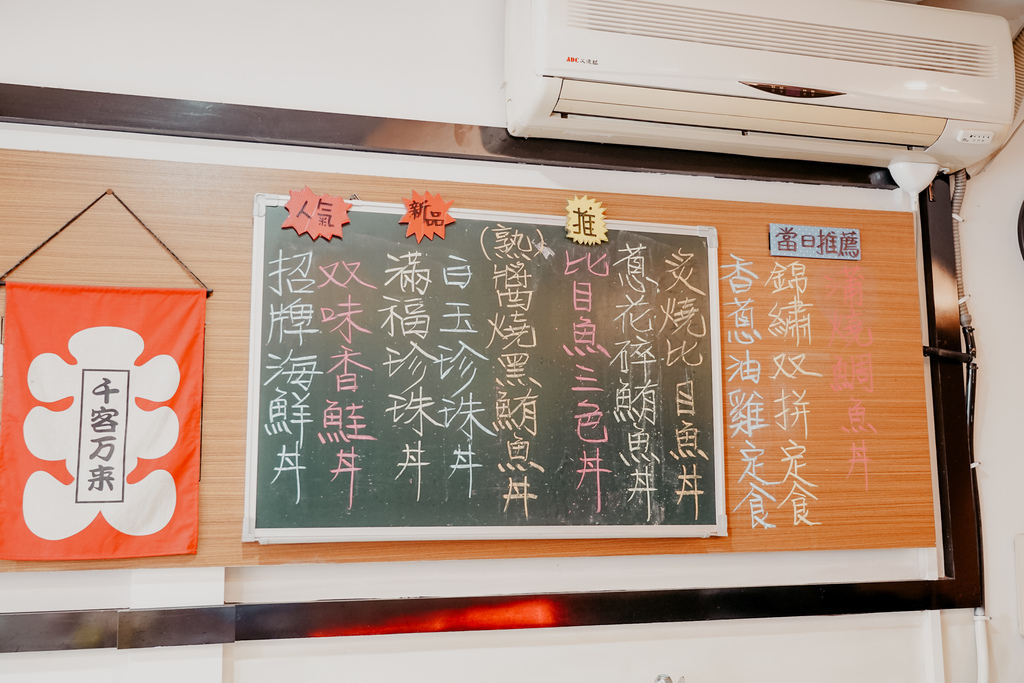 千客万来
人氣
新品
推
當日推薦
招牌海鮮丼
双味香鮭丼
滿福珍珠丼
白玉珍珠丼
(熟)醬燒黑鮪魚丼
比目魚三色丼
蔥花碎鮪魚丼
炙燒比目魚丼
香蔥油雞定食
錦繡双拼定食
蒲燒鯛魚丼
ADC